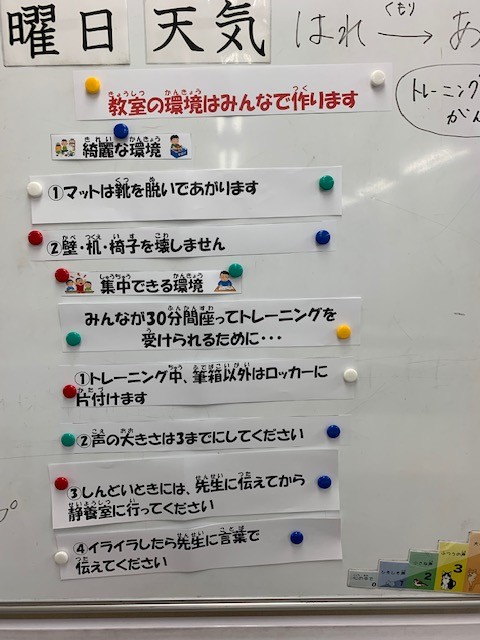 曜日 天気 はれ くもり → あ
トレーニング
がん
教室の環境はみんなで作ります
綺麗な環境
①マットは靴を脱いであがります
②壁・机・椅子を壊しません
集中できる環境
みんなが30分間座ってトレーニングを
受けられるために・・・
①トレーニング中、筆箱以外はロッカーに
片付けます
②声の大きさは3までにしてください
③しんどいときには、先生に伝えてから
静養室に行ってください
④イライラしたら先生に言葉で
伝えてください
0 1 2 3